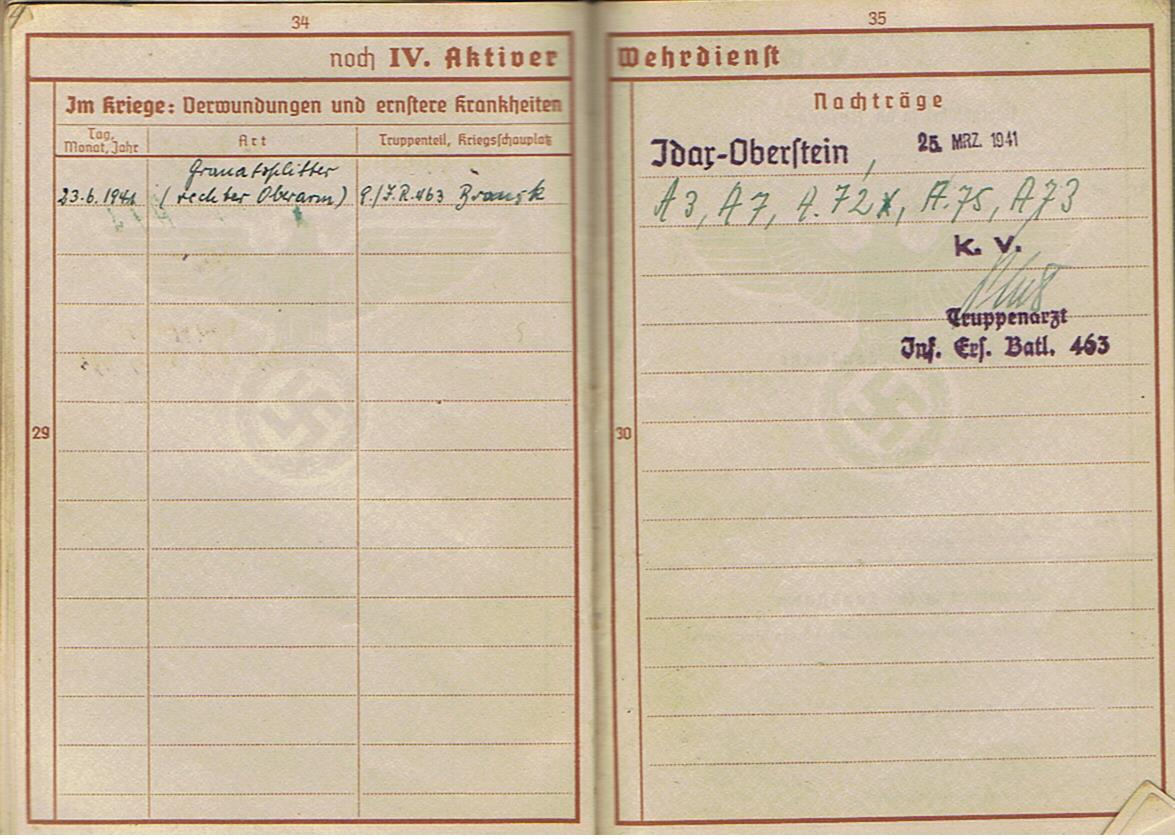 34
noch IV. Aktiver
Im Kriege: Verwundungen und ernstere Krankheiten
Tag, Monat, Jahr
Art
Truppenteil, Kriegsschauplatz
Granatsplitter
23.6.1941 (rechter Oberarm) 9./J.R.463 Bransk
29
35
Wehrdienst
Nachträge
Idar-Oberstein, 25. MRZ. 1941
A3, A7, A.72x, A.75, A73
k. v.
Truppenarzt
Inf. Ers. Batl. 463
30